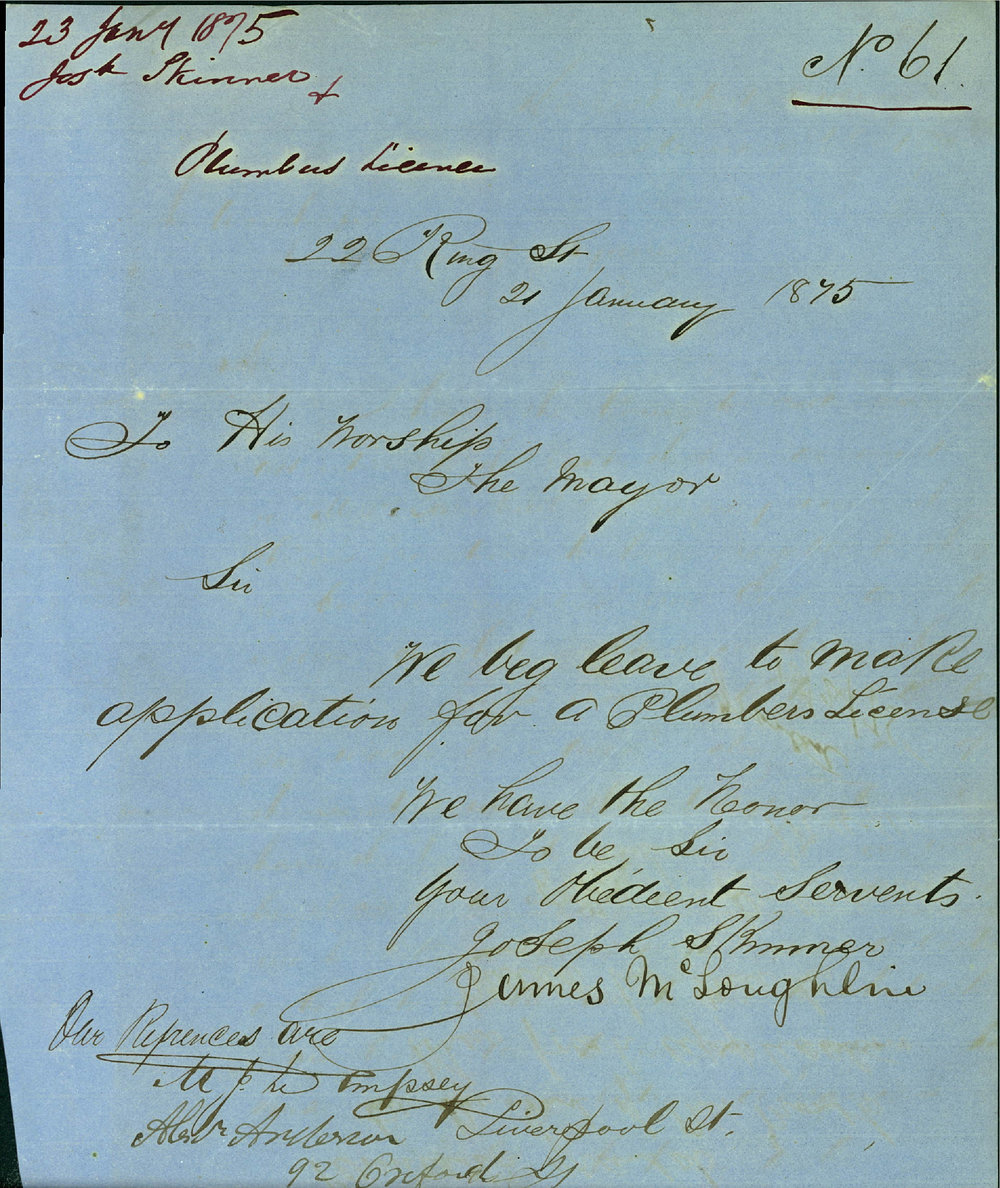 23 Jany 1875
Josh Skinner
No. 61
Plumbers Licence
22 King St
21 January 1875
To His Worship
The Mayor
Sir
We beg leave to make
application for a Plumbers License
We have the Honor
To be Sir
your Obedient Servents.
Joseph Skinner
James McLoughlin
Our Refrences are
Liverpool St.
Alexr Anderson
92 Oxford St